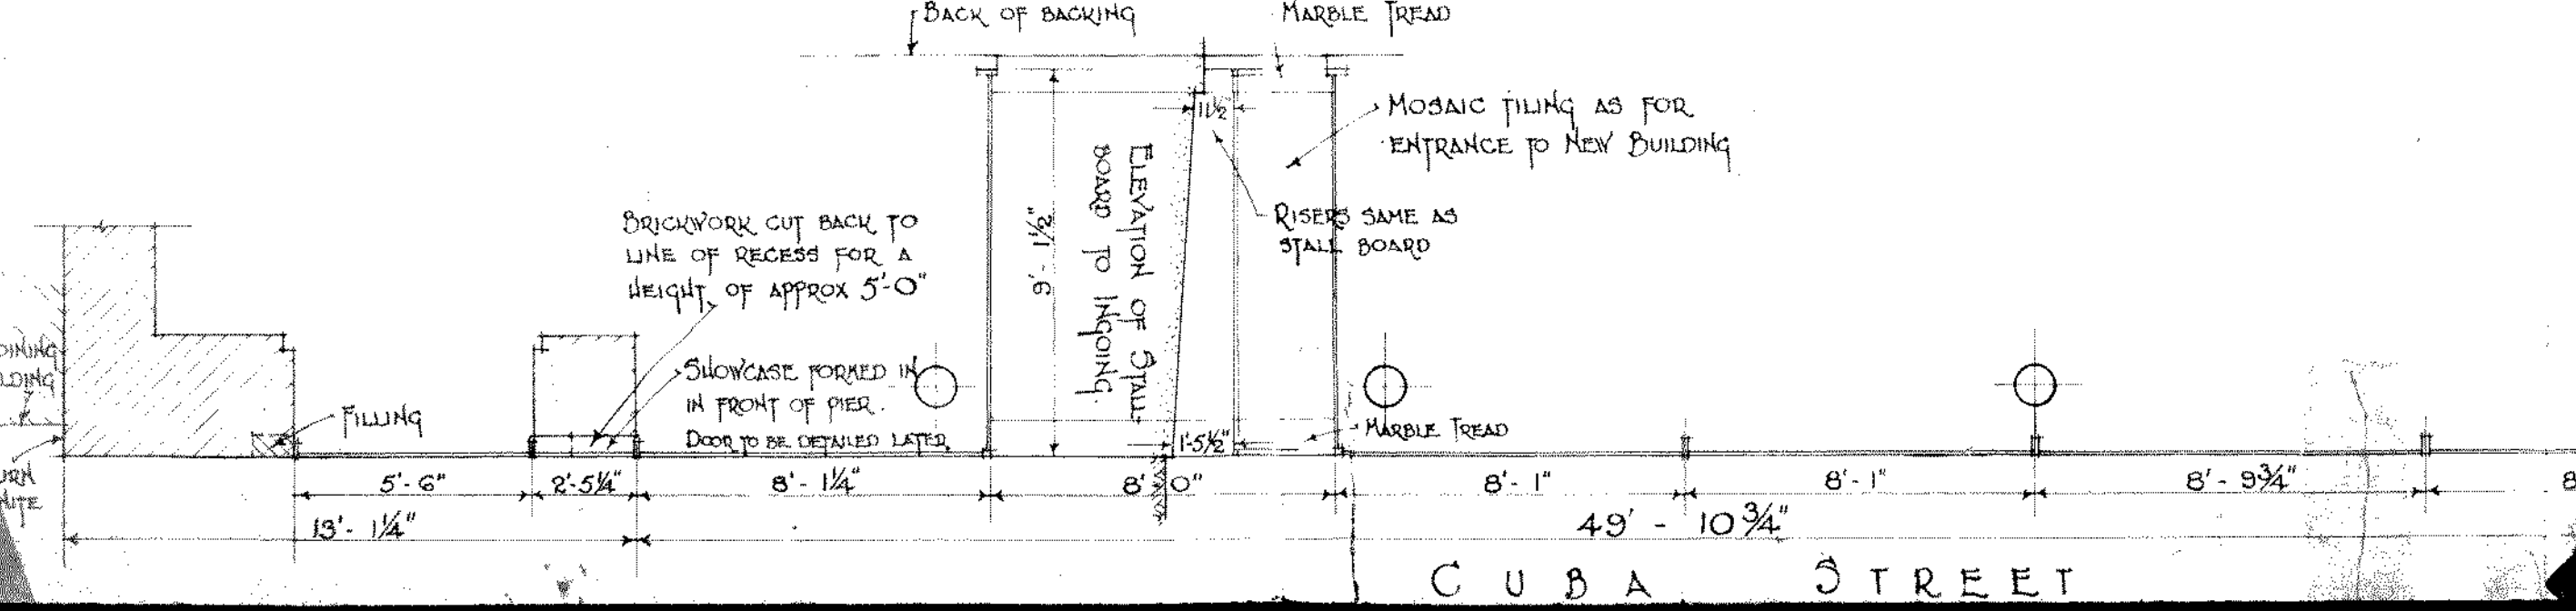 BACK OF BACKING
MARBLE TREAD
11½
MOSAIC TILING AS FOR
ENTRANCE TO NEW BUILDING
RISERS SAME AS
STALL BOARD
BRICKWORK CUT BACK TO
LINE OF RECESS FOR A
HEIGHT OF APPROX 5'-0"
9'-1½"
ELEVATION OF STALL-
BOARD TO INGOING.
SHOWCASE FORMED IN
IN FRONT OF PIER.
DOOR TO BE DETAILED LATER
FILLING
MARBLE TREAD
1'-5½"
5'-6"
2'-5¼"
8'-1¼"
8'-0"
8'-1"
8'-1"
8'-9¾"
8
13'-1¼"
49'-10¾"
CUBA STREET